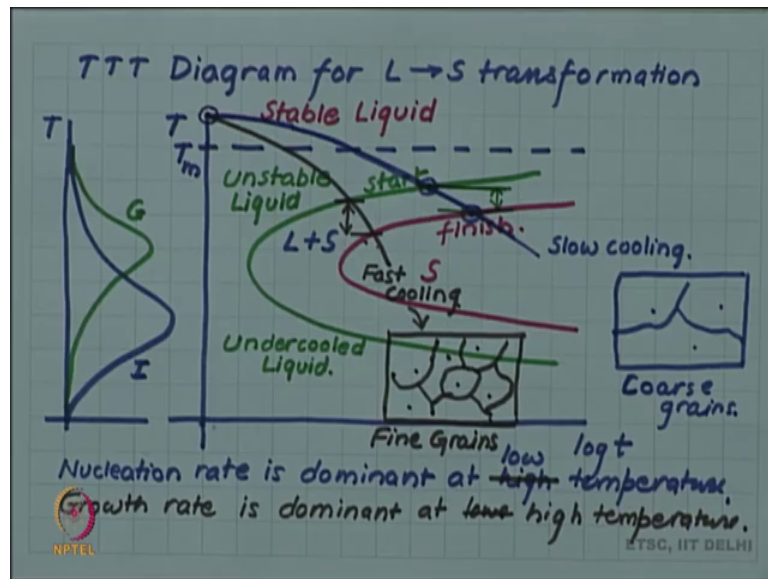 TTT Diagram for L → S transformation
T
T
Stable Liquid
Tm
Unstable
Liquid
start
G
L+S
finish.
Slow cooling.
Fast
cooling
S
I
Undercooled
Liquid.
Coarse
grains.
Fine Grains
log t
Nucleation rate is dominant at high low temperature.
Growth rate is dominant at low high temperature.
NPTEL
ETSC, IIT DELHI